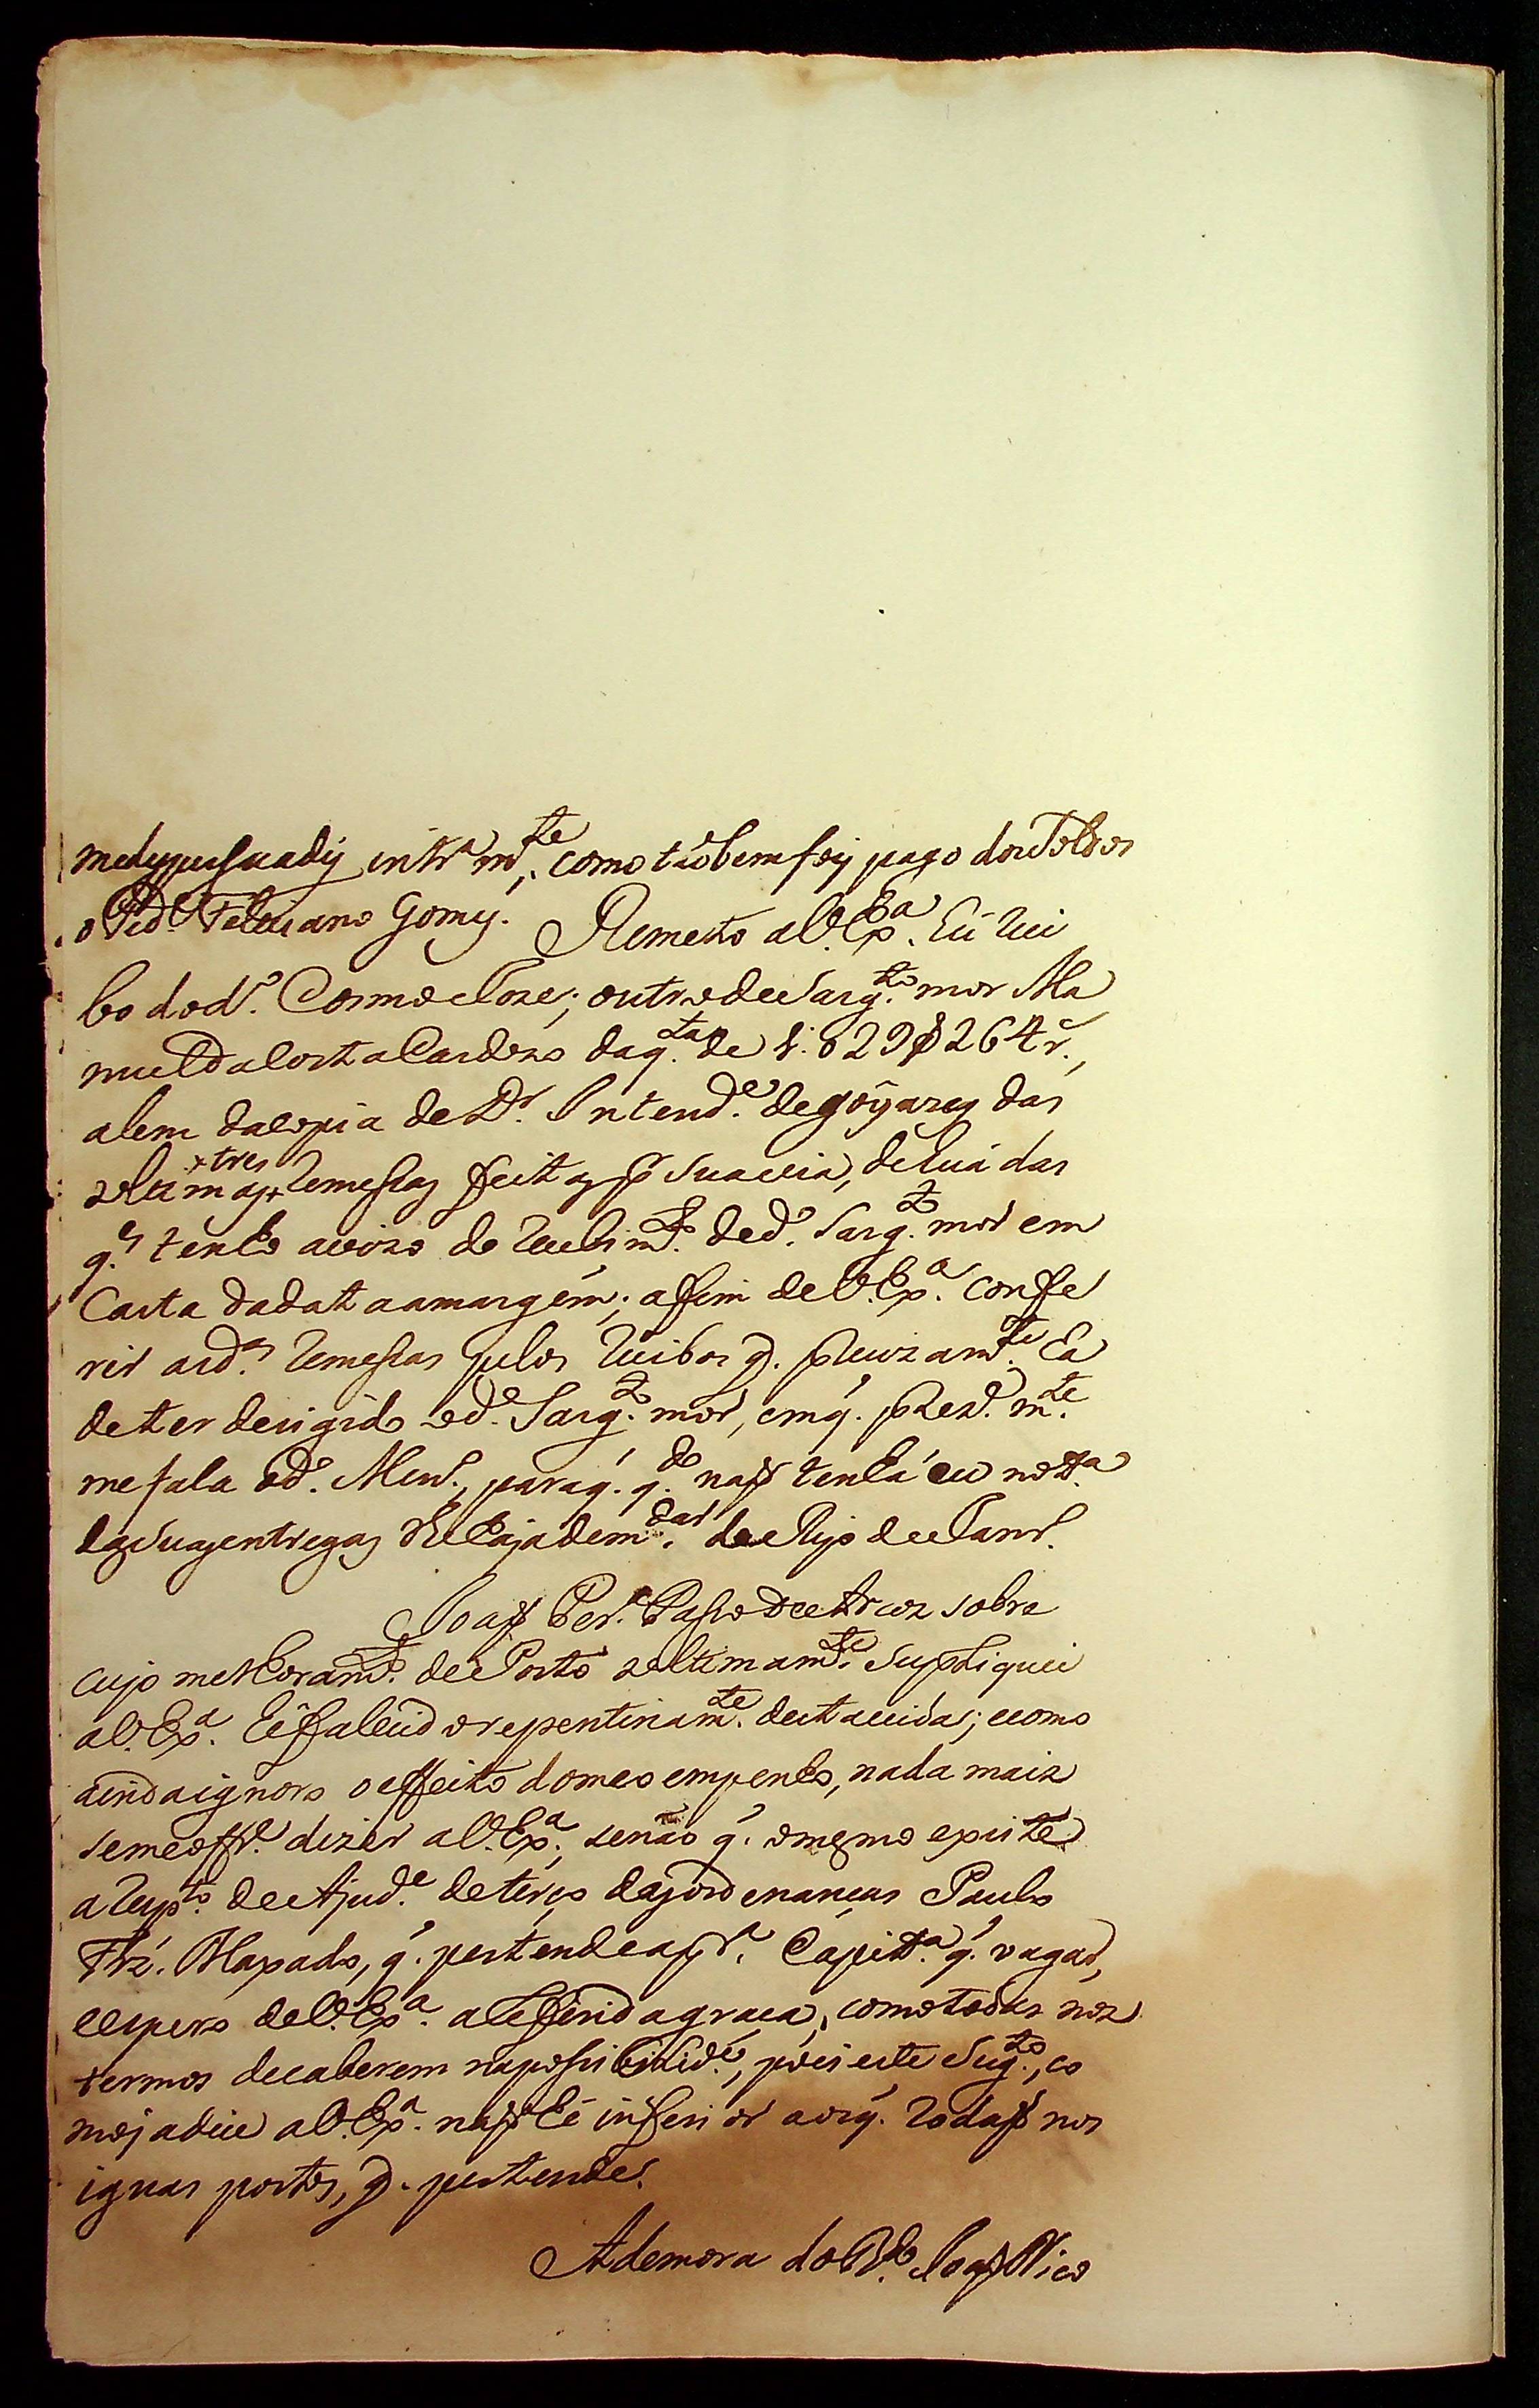 intr.ᵃ m.ᵗᵉ, como tãobem foy pago dou Toldos
o P.ᵈ Feleciano Gomes. Remeto a V. Ex.ᵃ hú reci
bo do d.º Cosmo Joze; outro do Sarg.ᵗᵒ mor Ma
nuel da Costa Cardozo da q.ᵗᵃ de 829$264 r.ˢ,
alem da copia do D.ʳ Intend.ᵉ de goyazes das
ultimas tres remessas feitas p.ʳ sua via, de huá das
q.ˢ tenho avizo do recebim.ᵗᵒ do d.º Sarg.ᵗᵒ mor em
Carta da data a margem; afim de V. Ex.ᵃ confe
rir as d.ᵃˢ remessas pelos recibos q. precizam.ᵗᵉ ha
de ter derigido o d.º Sarg.ᵗᵒ mor, em q. prez.ᵗᵉ m.ᵗᵉ
me fala o d.º Men.ʳ, para q. q.ᵈᵒ naõ tenha eu nott.ᵃ
das suas entregas lhe haja de m.ᵈᵃʳ do Rijo de Janr.º
Joaõ Per.ᵃ sobre
cujo melhoram.ᵗᵒ de Posto ultimam.ᵗᵉ supliquei
a V. Ex.ᵃ hé falecido repentinam.ᵗᵉ desta vida; e como
ainda ignoro o effeito do meo empenho, nada mais
se me offr.ᵉ dizer a V. Ex.ᵃ, senão q. o mesmo expuz té
a resp.ᵗᵒ do Ajud.ᵉ do terço das ordenanças Paulo
Frz. Maxado, q. pertende a p.ʳ Capitt.ᵃ q. vagar,
e espero de V. Ex.ᵃ a referida graça, como todas nos
termos de caberem na possibilid.ᵉ, pois este Sug.ᵗᵒ, co
mo já dice a V. Ex.ᵃ naõ hé inferior aos q. rodaõ nos
iguas postos, q. pertende.
A demora do P.ᵉ Joaõ Nico